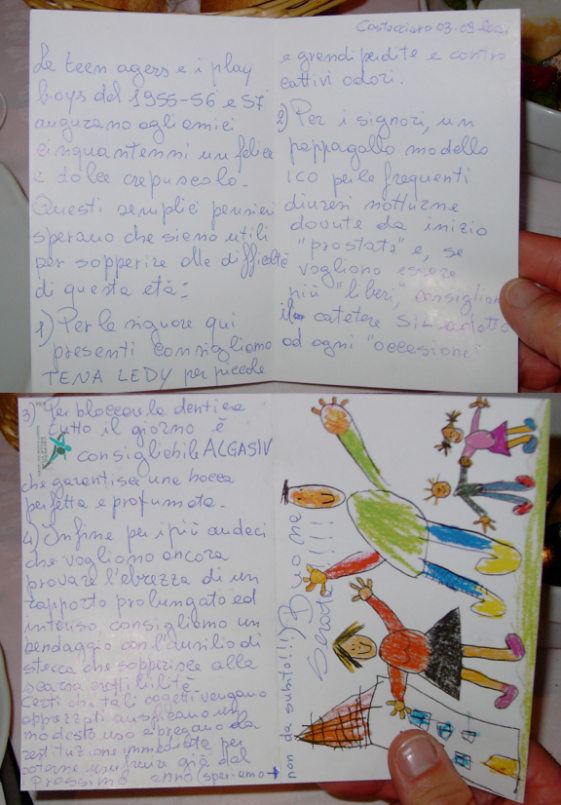 Costacciaro 03.09.2021
Le teen agers e i play
boys del 1955-56 e 57
augurano agli amici
cinquantenni un felice
e dolce crepuscolo.
Questi semplici pensieri
sperano che siano utili
per sopperire alle difficoltà
di questa età:
1) Per le signore qui
presenti consigliamo
TENA LEDY per piccole
e grandi perdite e contro
cattivi odori.
2) Per i signori, un
pappagallo modello
ICO per le frequenti
diuresi notturne
dovute da inizio
"prostata" e, se
vogliono essere
più "liberi", consigliamo
il catetere SIL adatto
ad ogni "occasione"
3) Per bloccare la dentiera
tutto il giorno è
consigliabile ALGASIV
che garantisce una bocca
perfetta e profumata.
4) Infine per i più audaci
che vogliono ancora
provare l'ebrezza di un
rapporto prolungato ed
intenso consigliamo un
bendaggio con l'ausilio di
stecca che sopperisce alla
scarsa erettilità.
Certi che tali oggetti vengano
apprezzati auspicano un
modesto uso e pregano la
restituzione immediata per
poterne usufruire già dal
prossimo anno (speriamo →
non da subito!!!)
Buona
Serata!!!!